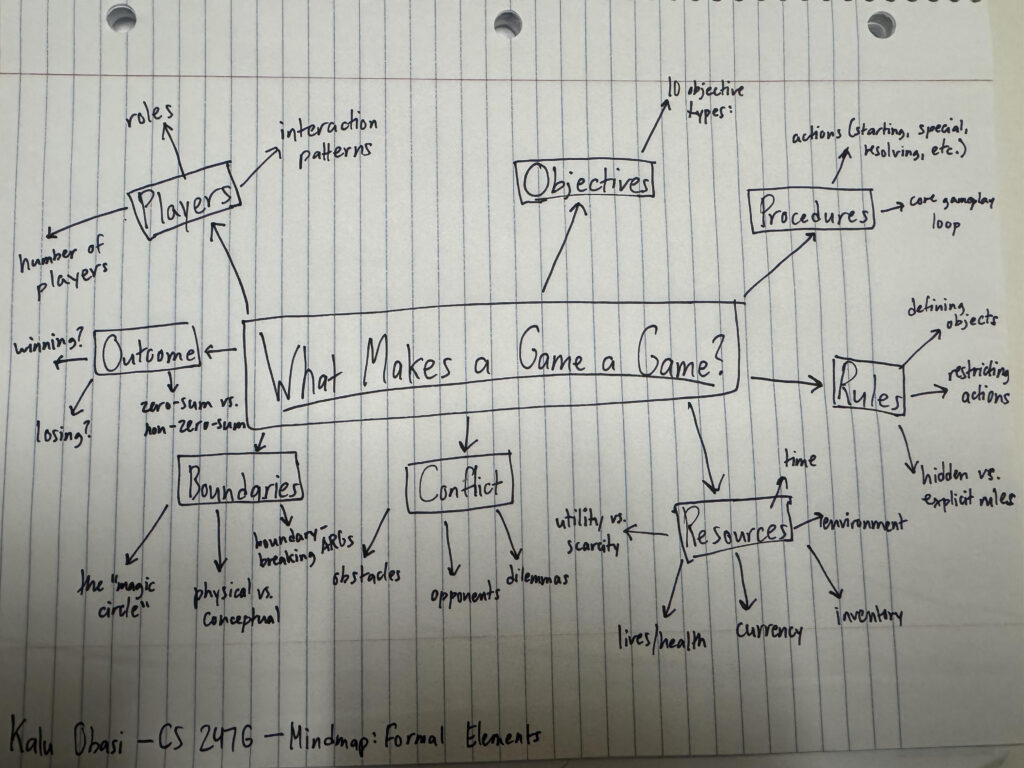 roles
interaction
patterns
Players
number of
players
10 objective
types:
Objectives
actions (starting, special,
resolving, etc.)
Procedures
core gameplay
loop
What Makes a Game a Game?
winning?
Outcome
losing?
zero-sum vs.
non-zero-sum
defining
objects
Rules
restricting
actions
hidden vs.
explicit rules
Boundaries
the "magic
circle"
physical vs.
conceptual
boundary-
breaking ARGs
Conflict
obstacles
opponents
dilemmas
Resources
time
environment
utility vs.
scarcity
lives/health
currency
inventory
Kalu Obasi - CS 247G - Mindmap: Formal Elements